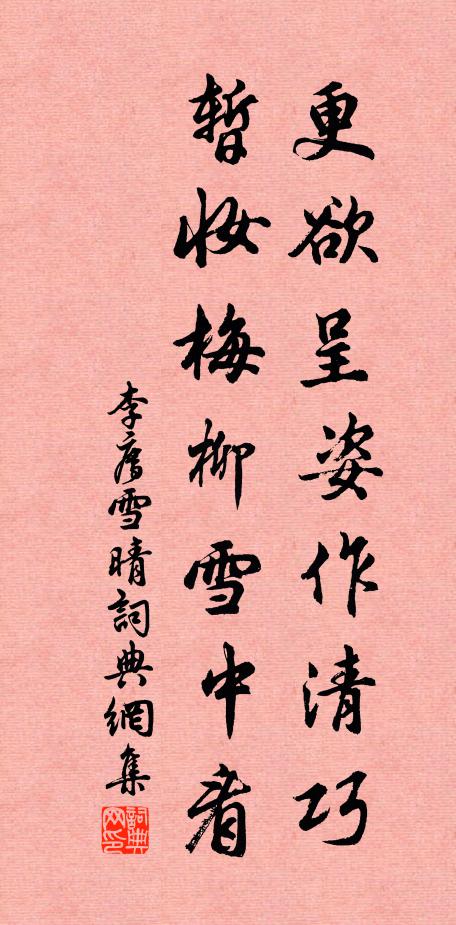 更欲呈姿作清巧
暫妆梅柳雪中看
李廌雪晴詞典網集
詞典网印